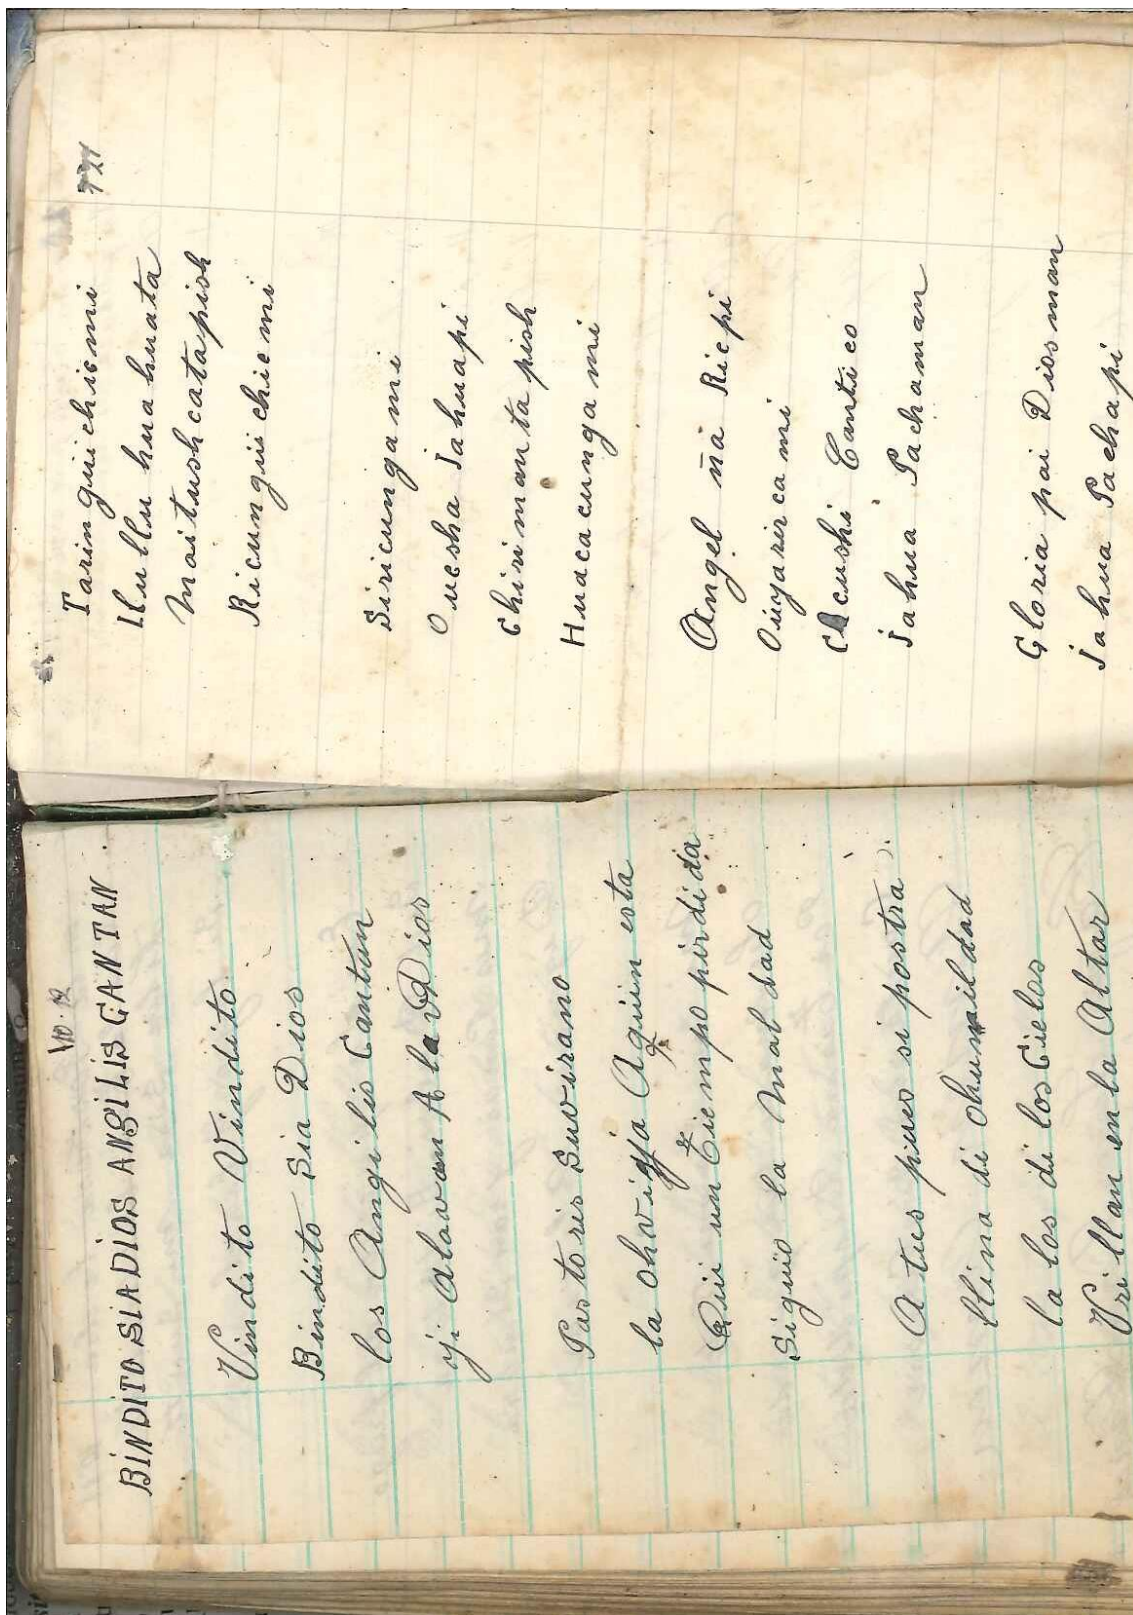 No. 12
BINDITO SIADIOS ANGILIS CANTAN
Vindito Vindito
Bindito Sia Dios
los Angilis Cantan
yi alavan A la Dios
Pastoris Suvirano
la ohvigja Aquin esta
Qui un Tiempo pirdida
Siguio la Maldad
A tus pies si postra
llina di ohumildad
la los di los Cielos
Vrillan en la Altar
Taringüichicmi
Llullu huahuata
Maitushcatapish
Ricungüichicmi
Siricungami
Oucsha Jahuapi
Chirimantapish
Huacacungami
Angel ña Ricpi
Ouyarircami
Cushi Cantico
Jahua Pachaman
Gloria pai Diosman
Jahua Pachapi